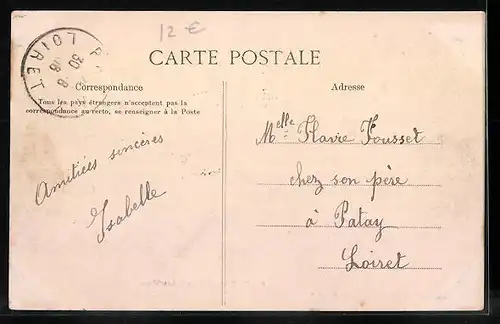 12 €
LOIRET
30 - 8
08
CARTE POSTALE
Correspondance
Tous les pays étrangers n'acceptent pas la
correspondance au recto, se renseigner à la Poste
Amitiées sincères
Isabelle
Adresse
Melle Flavie Fousset
chez son père
à Patay
Loiret